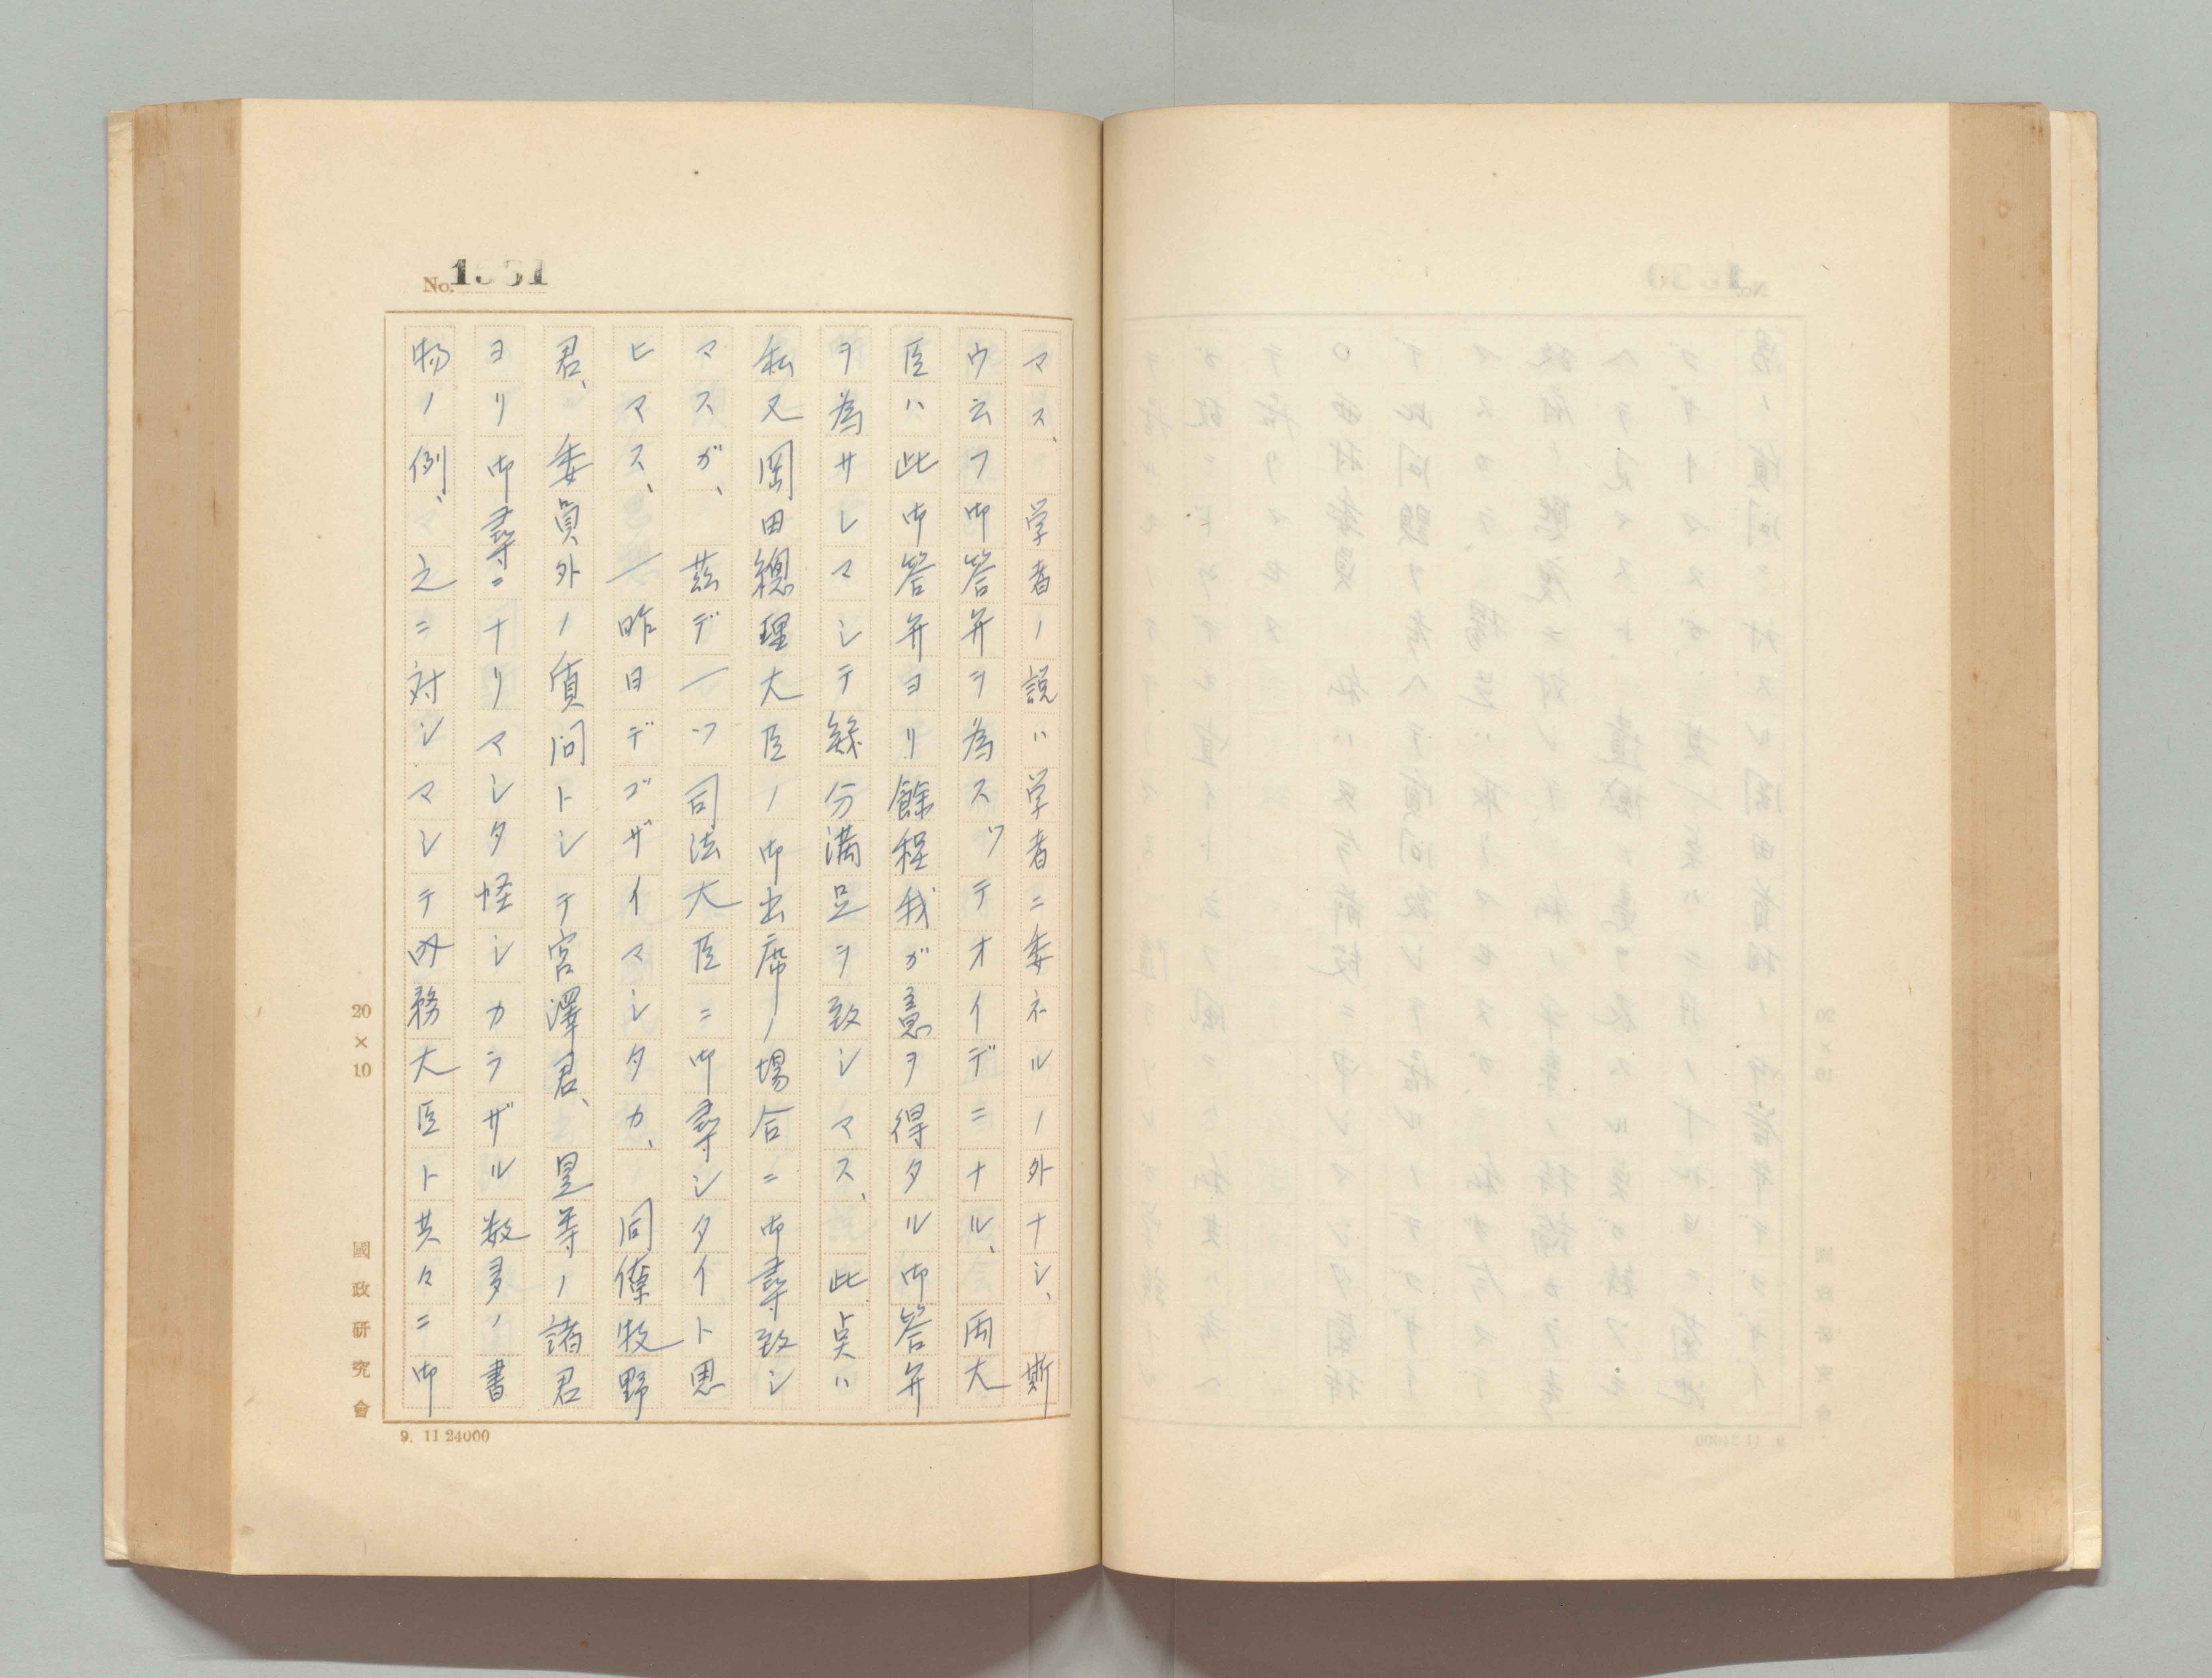 No. 1531
マス、学者ノ説ハ学者ニ委ネルノ外ナシ、斯
ウ云フ御答弁ヲ為スツテオイデニナル、両大
臣ハ此御答弁ヨリ餘程我ガ意ヲ得タル御答弁
ヲ為サレマシテ幾分満足ヲ致シマス、此点ハ
私又岡田總理大臣ノ御出席ノ場合ニ御尋致シ
マスガ、茲デ一ツ司法大臣ニ御尋シタイト思
ヒマス、昨日デゴザイマシタカ、同僚牧野
君、委員外ノ質問トシテ宮澤君、星等ノ諸君
ヨリ御尋ニナリマシタ怪シカラザル数多ノ書
物ノ例、之ニ対シマシテ内務大臣ト共々ニ御
20×10
國政研究會
9. 11.24000